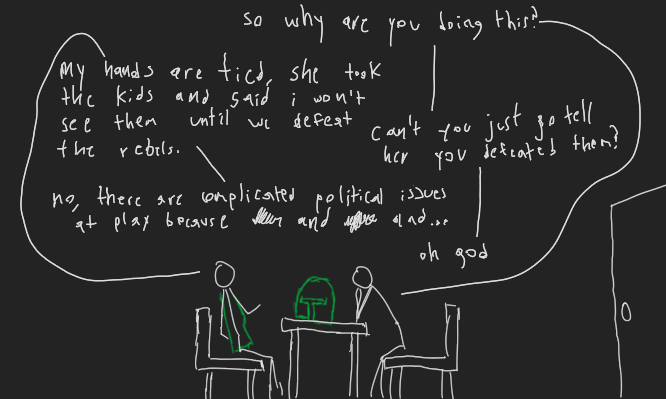 so why are you doing this?
My hands are tied, she took
the kids and said i won't
see them until we defeat
the rebels.
can't you just go tell
her you defeated them?
no, there are complicated political issues
at play because and and...
oh god